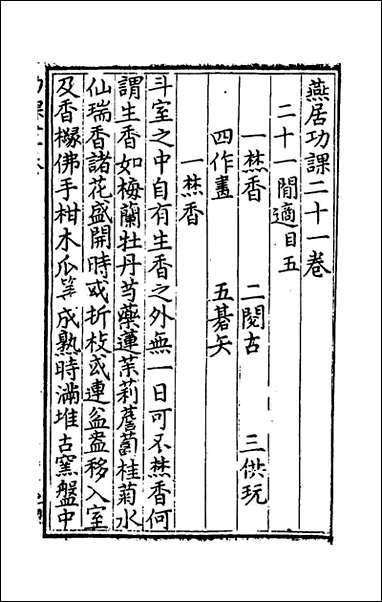 燕居功課二十一卷
二十一閒適目五
一焚香　二閱古　三供玩
四作畫　五碁矢
一焚香
斗室之中自有生香之外無一日可不焚香何
謂生香如梅蘭牡丹芍藥蓮茉莉薝蔔桂菊水
仙瑞香諸花盛開時或折枝或連盆盎移入室
及香櫞佛手柑木瓜等成熟時滿堆古窑盤中